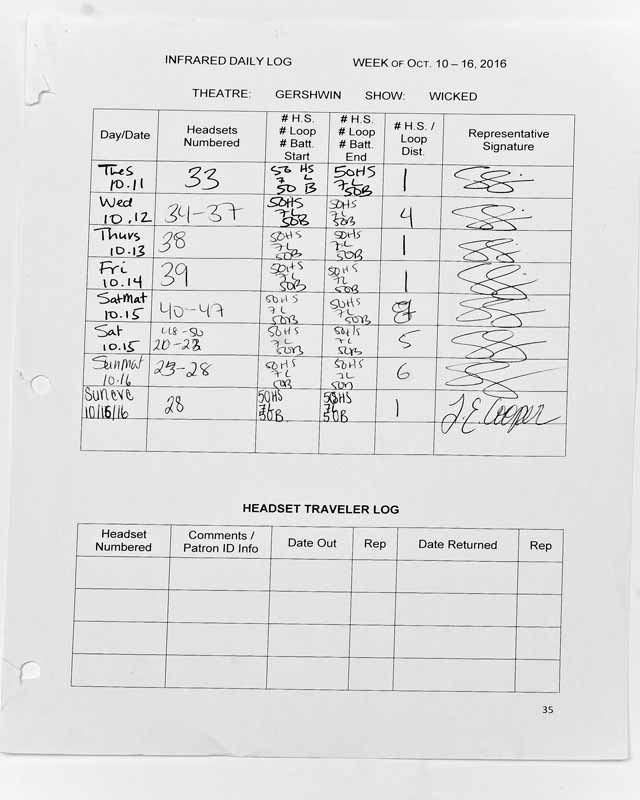 INFRARED DAILY LOG WEEK OF OCT. 10 – 16, 2016
THEATRE: GERSHWIN SHOW: WICKED
Day/Date Headsets Numbered # H.S. # Loop # Batt. Start # H.S. # Loop # Batt. End # H.S. / Loop Dist. Representative Signature
Tues 10.11 33 50 HS 7 L 50 B 50HS 7L 50B 1
Wed 10.12 34-37 50HS 7L 50B 50HS 7L 50B 4
Thurs 10.13 38 50HS 7L 50B 50HS 7L 50B 1
Fri 10.14 39 50HS 7L 50B 50HS 7L 50B 1
SatMat 10.15 40-47 50HS 7L 50B 50HS 7L 50B
Sat 10.15 48-50 20-23 50HS 7L 50B 50HS 7L 50B 5
SunMat 10.16 23-28 50HS 7L 50B 50HS 7L 50B 6
Sun eve 10/16/16 28 50HS 7L 50B 50HS 7L 50B 1 J.E. Cooper
HEADSET TRAVELER LOG
Headset Numbered Comments / Patron ID Info Date Out Rep Date Returned Rep
35